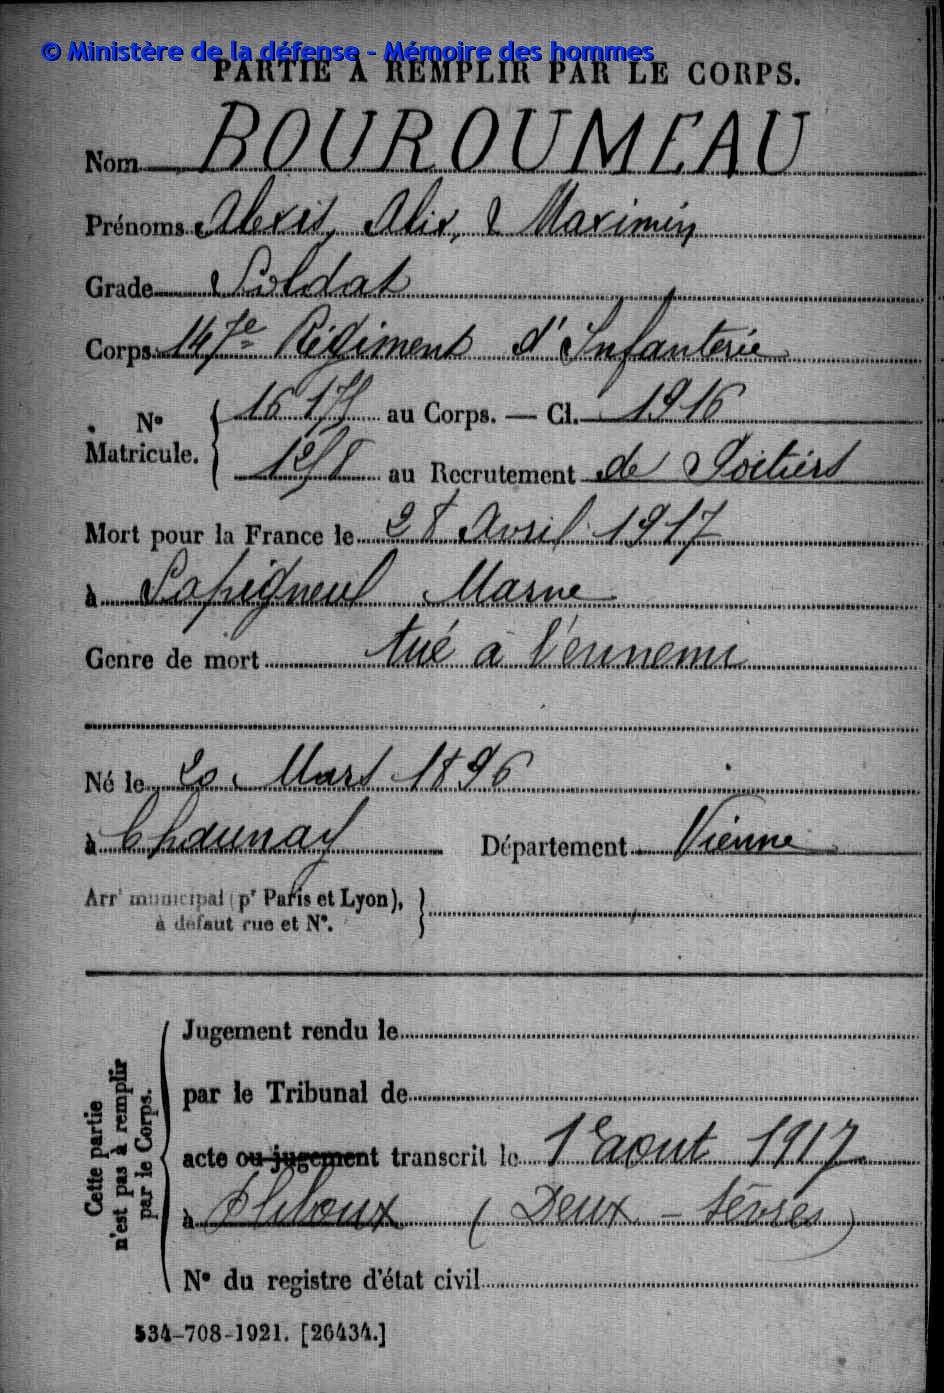 © Ministère de la défense - Mémoire des hommes
PARTIE À REMPLIR PAR LE CORPS.
Nom BOUROUMEAU
Prénoms Alexis, Alix, Maximin
Grade Soldat
Corps 147e Régiment d'Infanterie
N° Matricule. { au Corps. — Cl. 1916
au Recrutement de Poitiers
Mort pour la France le 28 Avril 1917
à Sapigneul Marne
Genre de mort tué à l'ennemi
Né le 20 Mars 1896
à Chaunay Département Vienne
Arrt municipal (pr Paris et Lyon),
à défaut rue et N°.
Cette partie
n'est pas à remplir
par le Corps.
Jugement rendu le
par le Tribunal de
acte ou jugement transcrit le 1er aout 1917
à Pliboux (Deux-Sèvres)
N° du registre d'état civil
534-708-1921. [26434.]